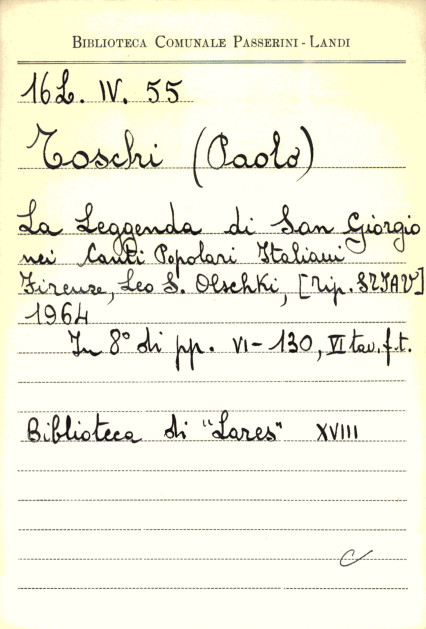 BIBLIOTECA COMUNALE PASSERINI - LANDI
16L. IV. 55
Toschi (Paolo)
La Leggenda di San Giorgio
nei Canti Popolari Italiani
Firenze, Leo S. Olschki, [Tip. STIAV]
1964
In 8° di pp. VI - 130, VI tav. f.t.
Biblioteca di "Lares" XVIII
C